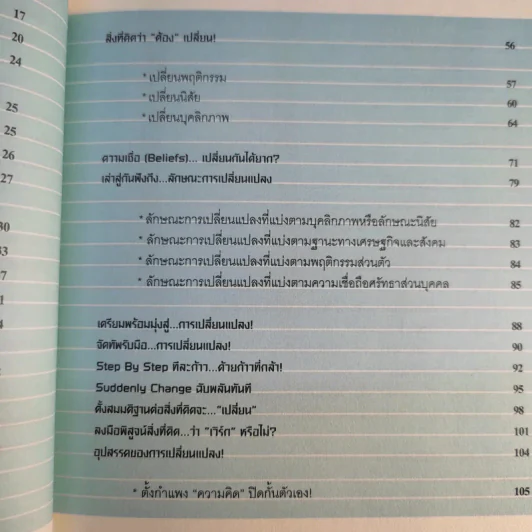 17
20
24
25
25
26
27
30
33
สิ่งที่คิดว่า "ต้อง" เปลี่ยน! 56
* เปลี่ยนพฤติกรรม 57
* เปลี่ยนนิสัย 60
* เปลี่ยนบุคลิกภาพ 64
ความเชื่อ (Beliefs)... เปลี่ยนกันได้ยาก? 71
เล่าสู่กันฟังถึง...ลักษณะการเปลี่ยนแปลง 79
* ลักษณะการเปลี่ยนแปลงที่แบ่งตามบุคลิกภาพหรือลักษณะนิสัย 82
* ลักษณะการเปลี่ยนแปลงที่แบ่งตามฐานะทางเศรษฐกิจและสังคม 83
* ลักษณะการเปลี่ยนแปลงที่แบ่งตามพฤติกรรมส่วนตัว 84
* ลักษณะการเปลี่ยนแปลงที่แบ่งตามความเชื่อถือศรัทธาส่วนบุคคล 85
เตรียมพร้อมมุ่งสู่...การเปลี่ยนแปลง! 88
จัดทัพรับมือ...การเปลี่ยนแปลง! 90
Step By Step ทีละก้าว...ด้วยก้าวที่กล้า! 92
Suddenly Change ฉับพลันทันที 95
ตั้งสมมติฐานต่อสิ่งที่คิดจะ..."เปลี่ยน" 98
ลงมือพิสูจน์สิ่งที่คิด...ว่า "เวิร์ก" หรือไม่? 101
อุปสรรคของการเปลี่ยนแปลง! 104
* ตั้งกำแพง "ความคิด" ปิดกั้นตัวเอง! 105